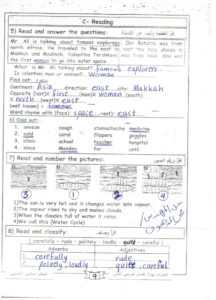 C- Reading
5) Read and answer the questions:
Mr. Ali is talking about famous explorers. Ibn Batutta was from
north Africa. He travelled to the east to visit the holy places in
Makkah and Madinah. Valentina Tereshkova was from Russia. She was
the first woman to go into outer space.
What is Mr. Ali talking about? Famous explorers
Is valentina man or woman? Woman
Find out:
Continent Asia direction east city Makkah
Opposite (last)X first (man)X woman (south)
X north (west)X east
(well known) = famous
Word rhyme with (face) space (nest) east
6) Odd out:
1 sneeze cough stomachache medicine
2 cold coral flippers goggles
3 clinic school teacher hospital
4 since Monday for until
7) Read and number the pictures:
3 1 2 4
1)The sun is very hot and it changes water into vapour.
2)The vapour rises to sky and makes clouds.
3)When the clouds full of water it rains
4)We call this (Water Cycle)
8) Read and classify:
( carefully - rude - politely - loudly - quite - careful )
carefully rude
quite careful
9